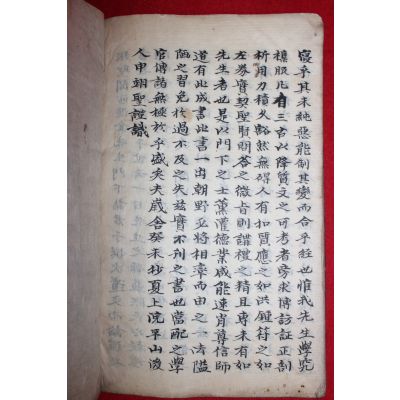 寔乎其未純惡能制其變而合乎經也惟我先生學究
積股凡有三百以降質文之可考者旁求博訪証正剖
析用力積久豁然無碍人有扣質應之如洪鍾符之如
左券實契聖賢問答之微旨則禮之精且專未有如
先生者也是以門下之士薰灌德業咸能速肖尊信師
道有此成書此書一出朝野並將相率而由之一洗隘
陋之習免於過不及之失玆實不刋之書也當配之學
官傳諸無極於乎盛矣夫歲舍癸未抄夏上院平山後
人申翊聖謹識